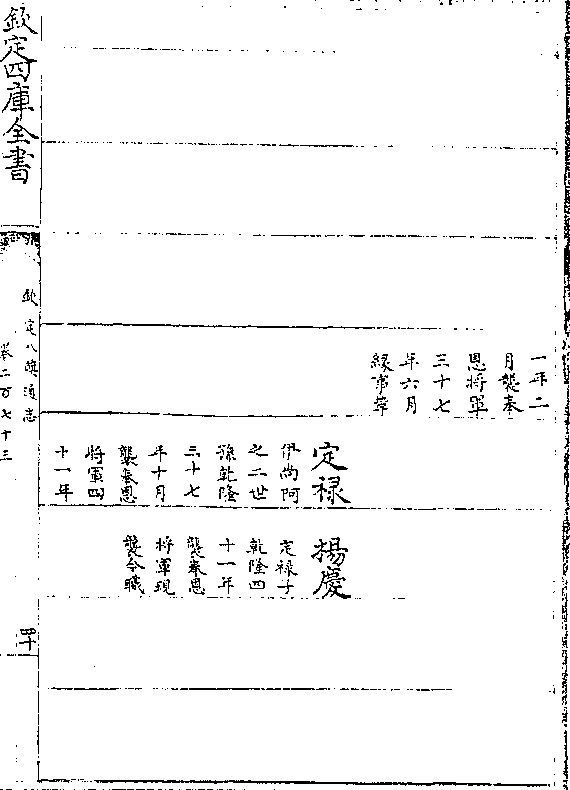 一年二
月襲奉
恩將軍
三十七
年六月
緣事革
定祿
伊尚阿
之二世
孫乾隆
三十七
年十月
襲奉恩
將軍四
十一年
揚慶
定祿子
乾隆四
十一年
襲奉恩
將軍現
襲今職
欽定四庫全書
欽定八旗通志
卷二百七十三
四十